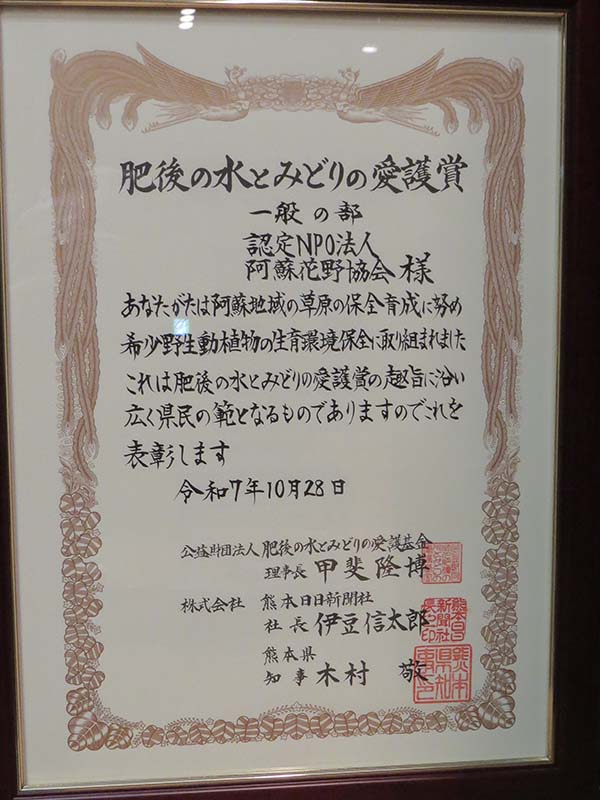 肥後の水とみどりの愛護賞
一般の部
認定NPO法人
阿蘇花野協会 様
あなたがたは阿蘇地域の草原の保全育成に努め
希少野生動植物の生育環境保全に取り組まれました
これは肥後の水とみどりの愛護賞の趣旨に沿い
広く県民の範となるものでありますのでこれを
表彰します
令和7年10月28日
公益財団法人 肥後の水とみどりの愛護基金
理事長 甲斐隆博
株式会社 熊本日日新聞社
社長 伊豆信太郎
熊本県
知事 木村 敬